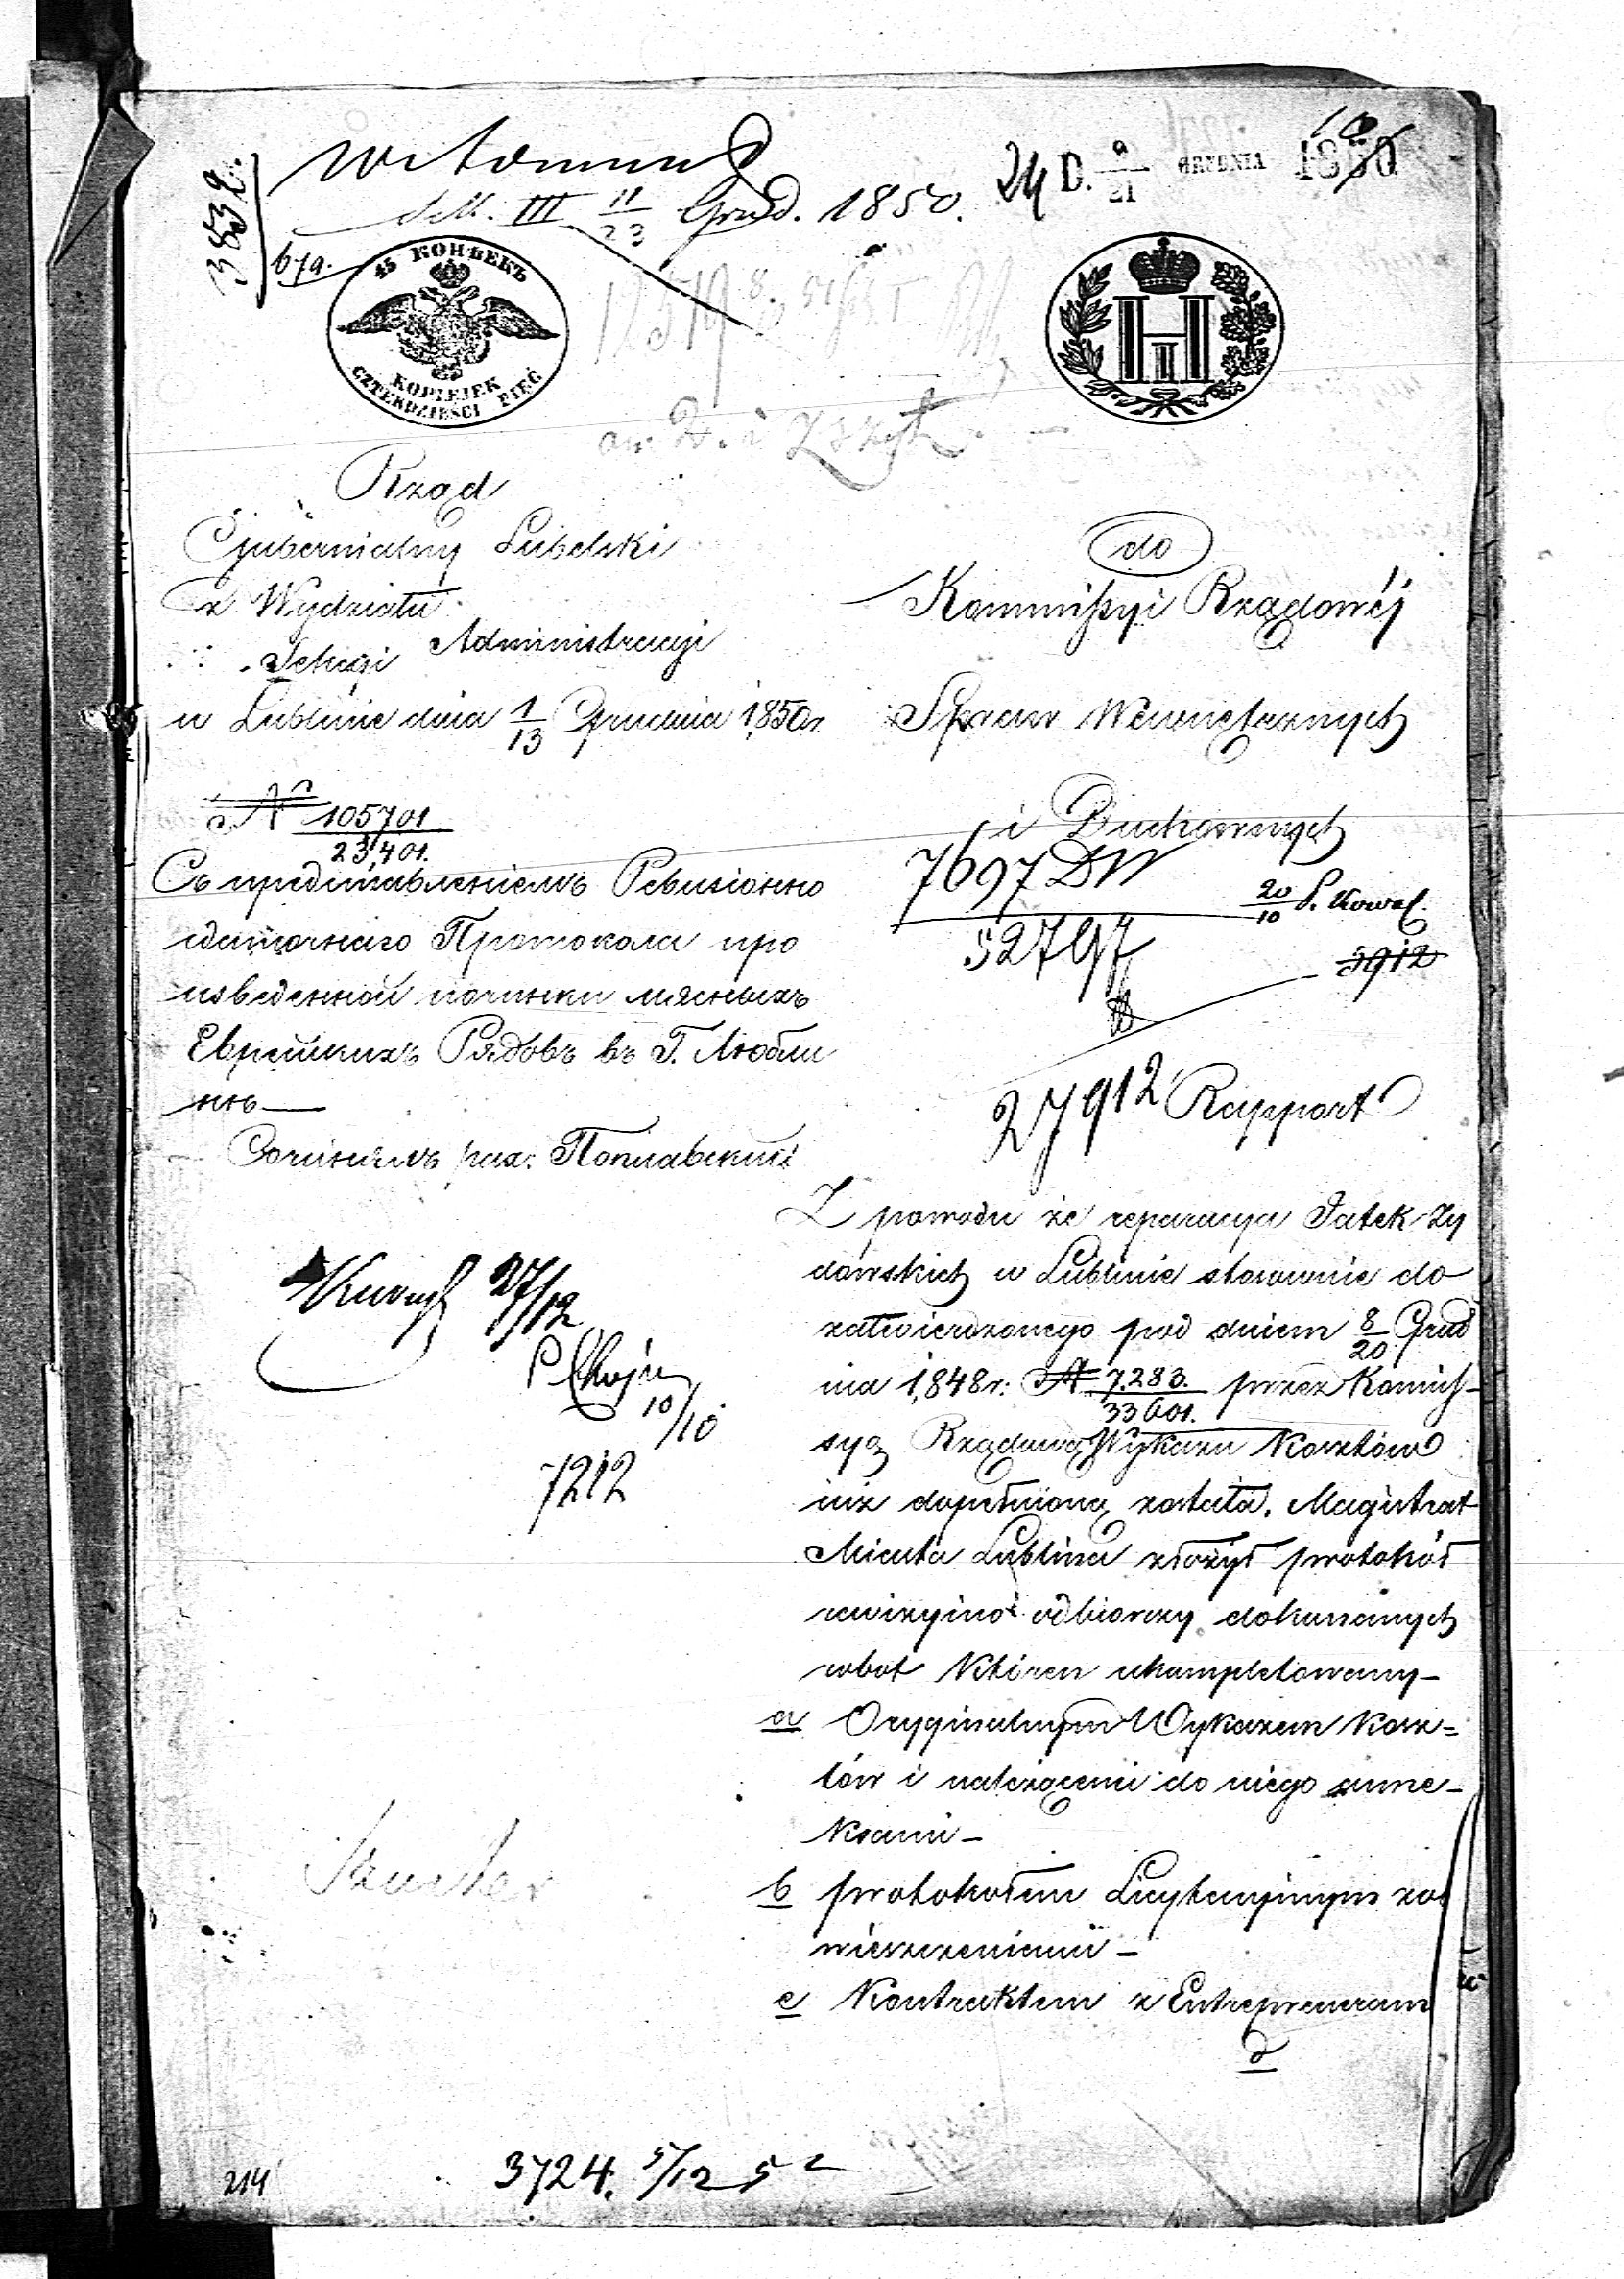 w tomus
38532.
67a.
Sek. III 11/23 Grud. 1850.
24 D. 9/21 GRUDNIA 1850
45 КОПѢЕКЪ
KOPIEIEK
CZTERDZIEŚCI PIĘĆ
Rząd
Gubernialny Lubelski
z Wydziału
Administracyi
Sekcyi
w Lublinie dnia 1/13 Grudnia 1850 r.
N 105701/23,401.
Съ представленіемъ Ревизіонно
сдаточнаго Протокола про
изведенной починки мясныхъ
Еврейскихъ Рядовъ въ Г. Любли
нѣ
Поплавскій
27/12
10/10
7212
do
Kommissyi Rządowéj
Spraw Wewnętrznych
i Duchownych
7697 DW
52797
20/10 P. Kowal.
5912
27912
Rapport
Z powodu że reparacya Jatek Ży
dowskich w Lublinie stosownie do
zatwierdzonego pod dniem 8/20 Grud
nia 1848 r: N 7283./33601. przez Kommis-
syą Rządową Wykazu Kosztów
już dopełnioną została. Magistrat
Miasta Lublina złożył protokół
rewizyino odbiorczy dokonanych
robot któren ukompletowany
a Oryginalnym Wykazem Kosz=
tów i należącemi do niego anne-
ksami
b protokołem Licytacyinym z ob
wieszczeniami
c Kontraktem z Entreprenerem
d
3724. 5/12 52
214